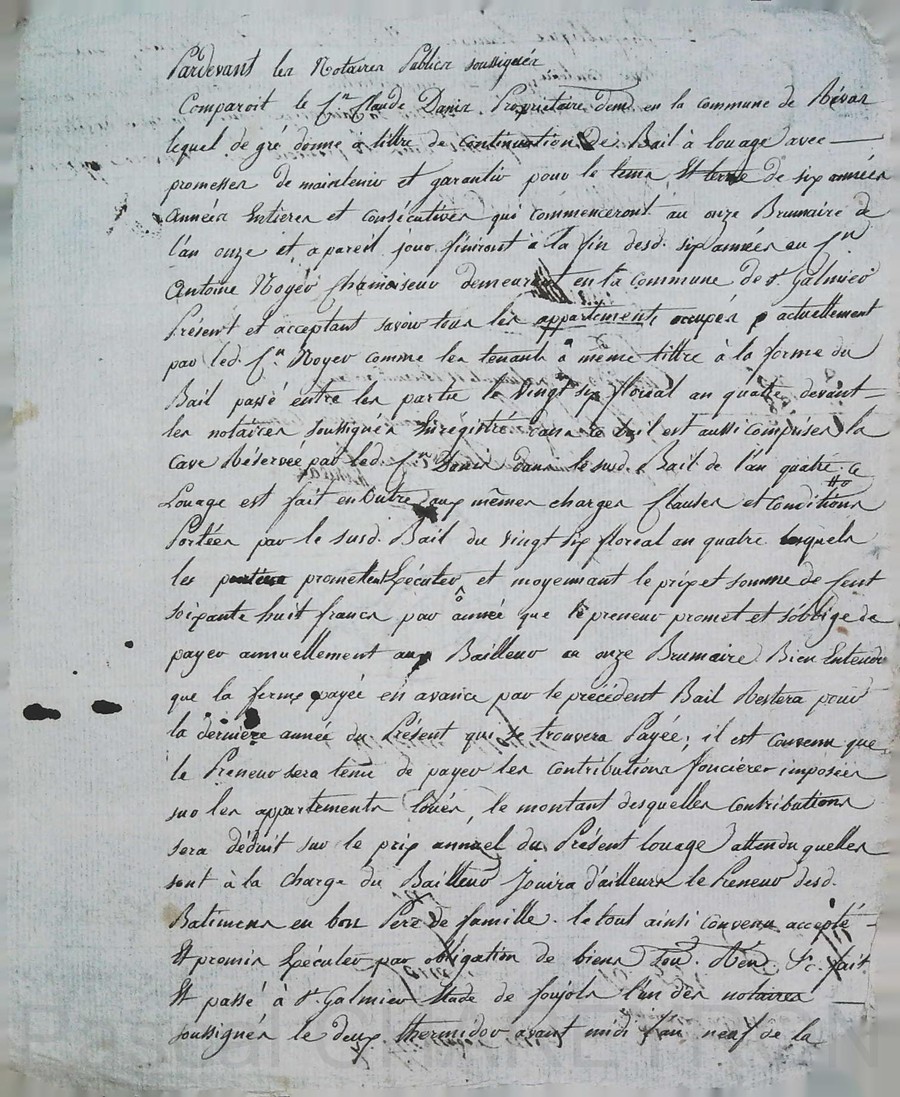 Pardevant les Notaires Publics soussignés
Comparoit le Cn Claude Danis Propriétaire demt en la commune de
lequel de gré donne à tittre de continuation de Bail à louage avec
promesses de maintenir et garantir pour le tems et terme de six années
années Entieres et consécutives qui commenceront au onze Brumaire de
l'an onze et a pareil jour finiront à la fin desd. six années au Cn
Antoine Noyer Chamoiseur demeurant en la commune de St Galmier
Présent et acceptant savoir tous les appartements occupés actuellement
par led. Cn Noyer comme les tenants à même tittre à la forme du
Bail passé entre les partie le Vingt six floréal an quatre devant
les notaires soussignés Enrégistré dans ce Bail est aussi comprises la
Cave Réservée par led. Cn Danis dans le susd. Bail de l'an quatre. Ce
Louage est fait en Outre aux mêmes charges Clauses et Conditions
Portées par le susd. Bail du vingt six floréal an quatre lesquels
les parties promettent Exécuter et moyennant le prix et somme de Cent
soixante huit francs par année que le preneur promet et s'oblige de
payer annuellement au Bailleur ce onze Brumaire Bien Entendu
que la ferme payée en avance par le précédent Bail Restera pour
la derniere année du Présent qui se trouvera Payée; il est convenu que
le Preneur sera tenu de payer les Contributions foncières imposées
sur les appartements loués, le montant desquelles contributions
sera déduit sur le prix annuel du Présent louage attendu quelles
sont à la charge du Bailleur Jouira d'ailleurs le Preneur desd.
Batimens en bon Père de famille. le tout ainsi convenu accepté
Et promis Exécuter par obligation de biens &c. fait
Et passé à St Galmier Etude de foujols l'un des notaires
soussignés le deux thermidor avant midi l'an neuf de la